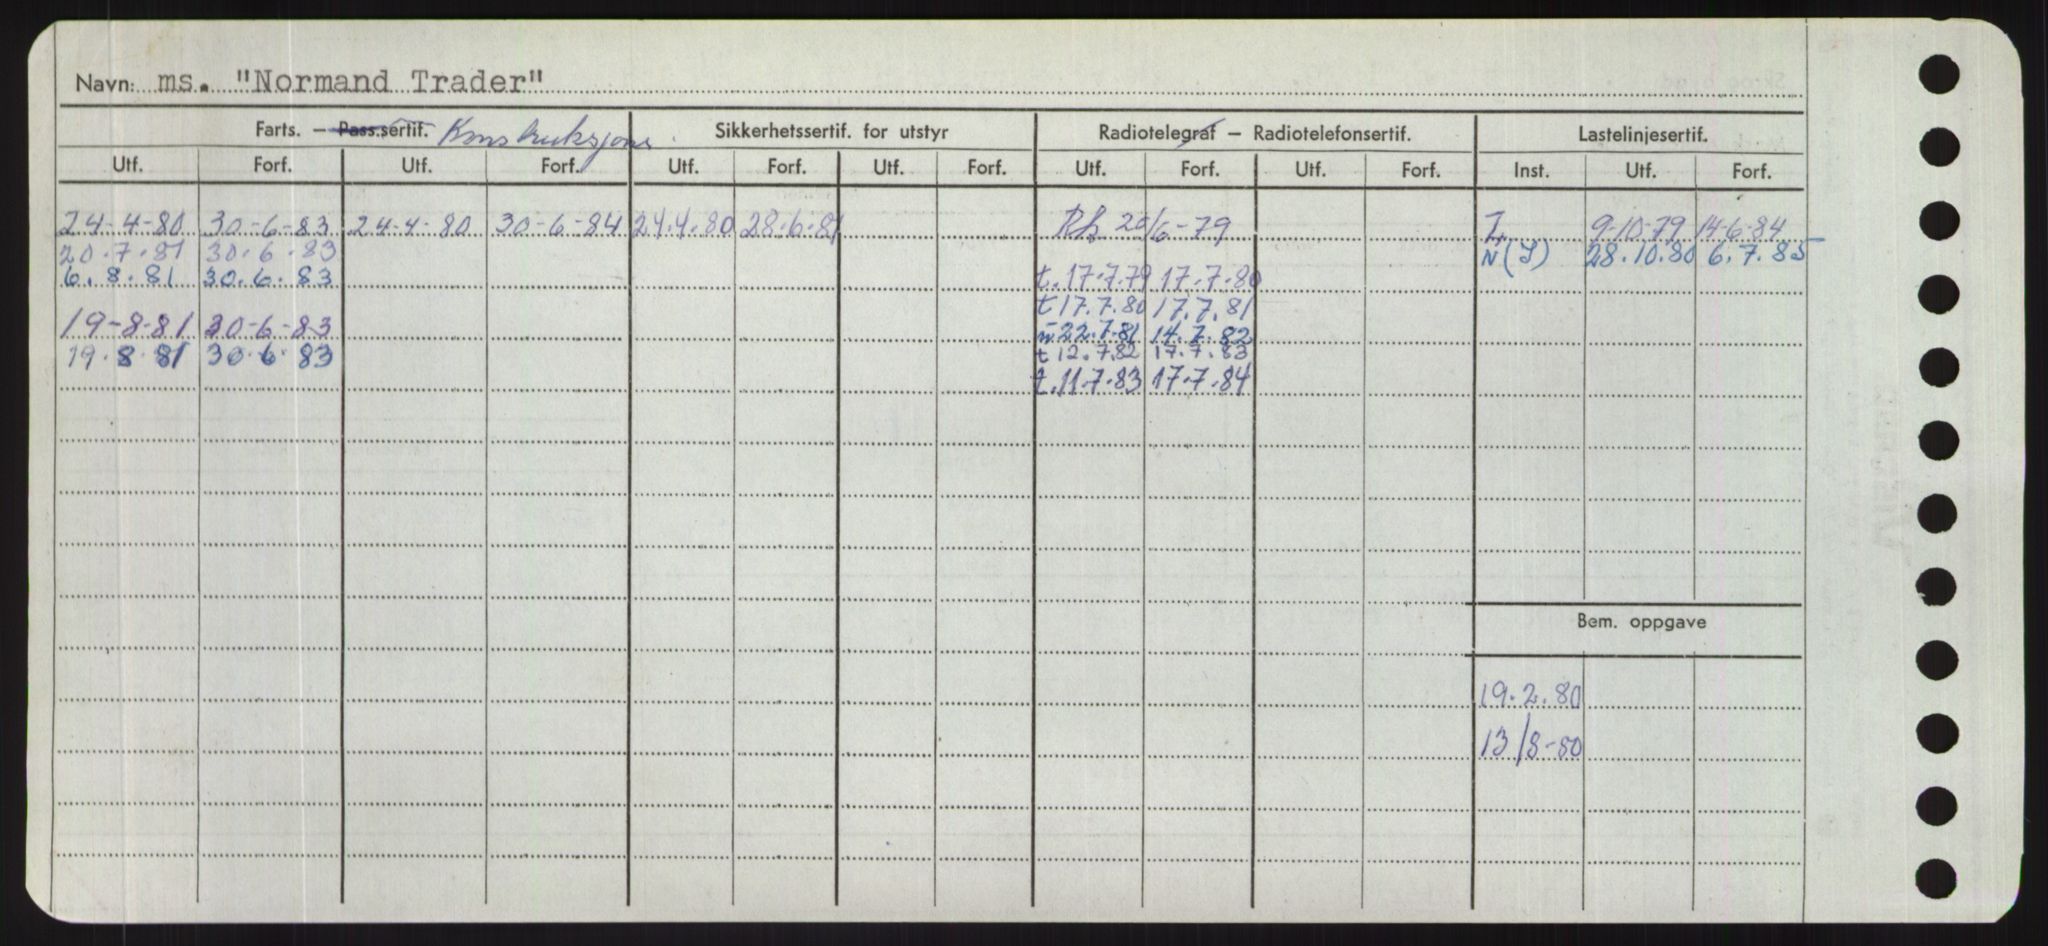 Navn: ms. "Normand Trader"
Farts. – Pass.sertif. Konstruksjons. Sikkerhetssertif. for utstyr Radiotelegraf – Radiotelefonsertif. Lastelinjesertif.
Utf. Forf. Utf. Forf. Utf. Forf. Utf. Forf. Utf. Forf. Utf. Forf. Inst. Utf. Forf.
24-4-80 30-6-83 24-4-80 30-6-84 24.4.80 28.6.81 20/6-79 9-10-79 14-6-84
20.7.81 30.6.83 N(I) 28.10.80 6.7.85
6.8.81 30.6.83 t.17.7.79 17.7.80
t 17.7.80 17.7.81
19-8-81 30-6-83 22.7.81 14.7.82
19.8.81 30.6.83 t 12.7.82 17.7.83
t.11.7.83 17.7.84
Bem. oppgave
19.2.80
13/8-80